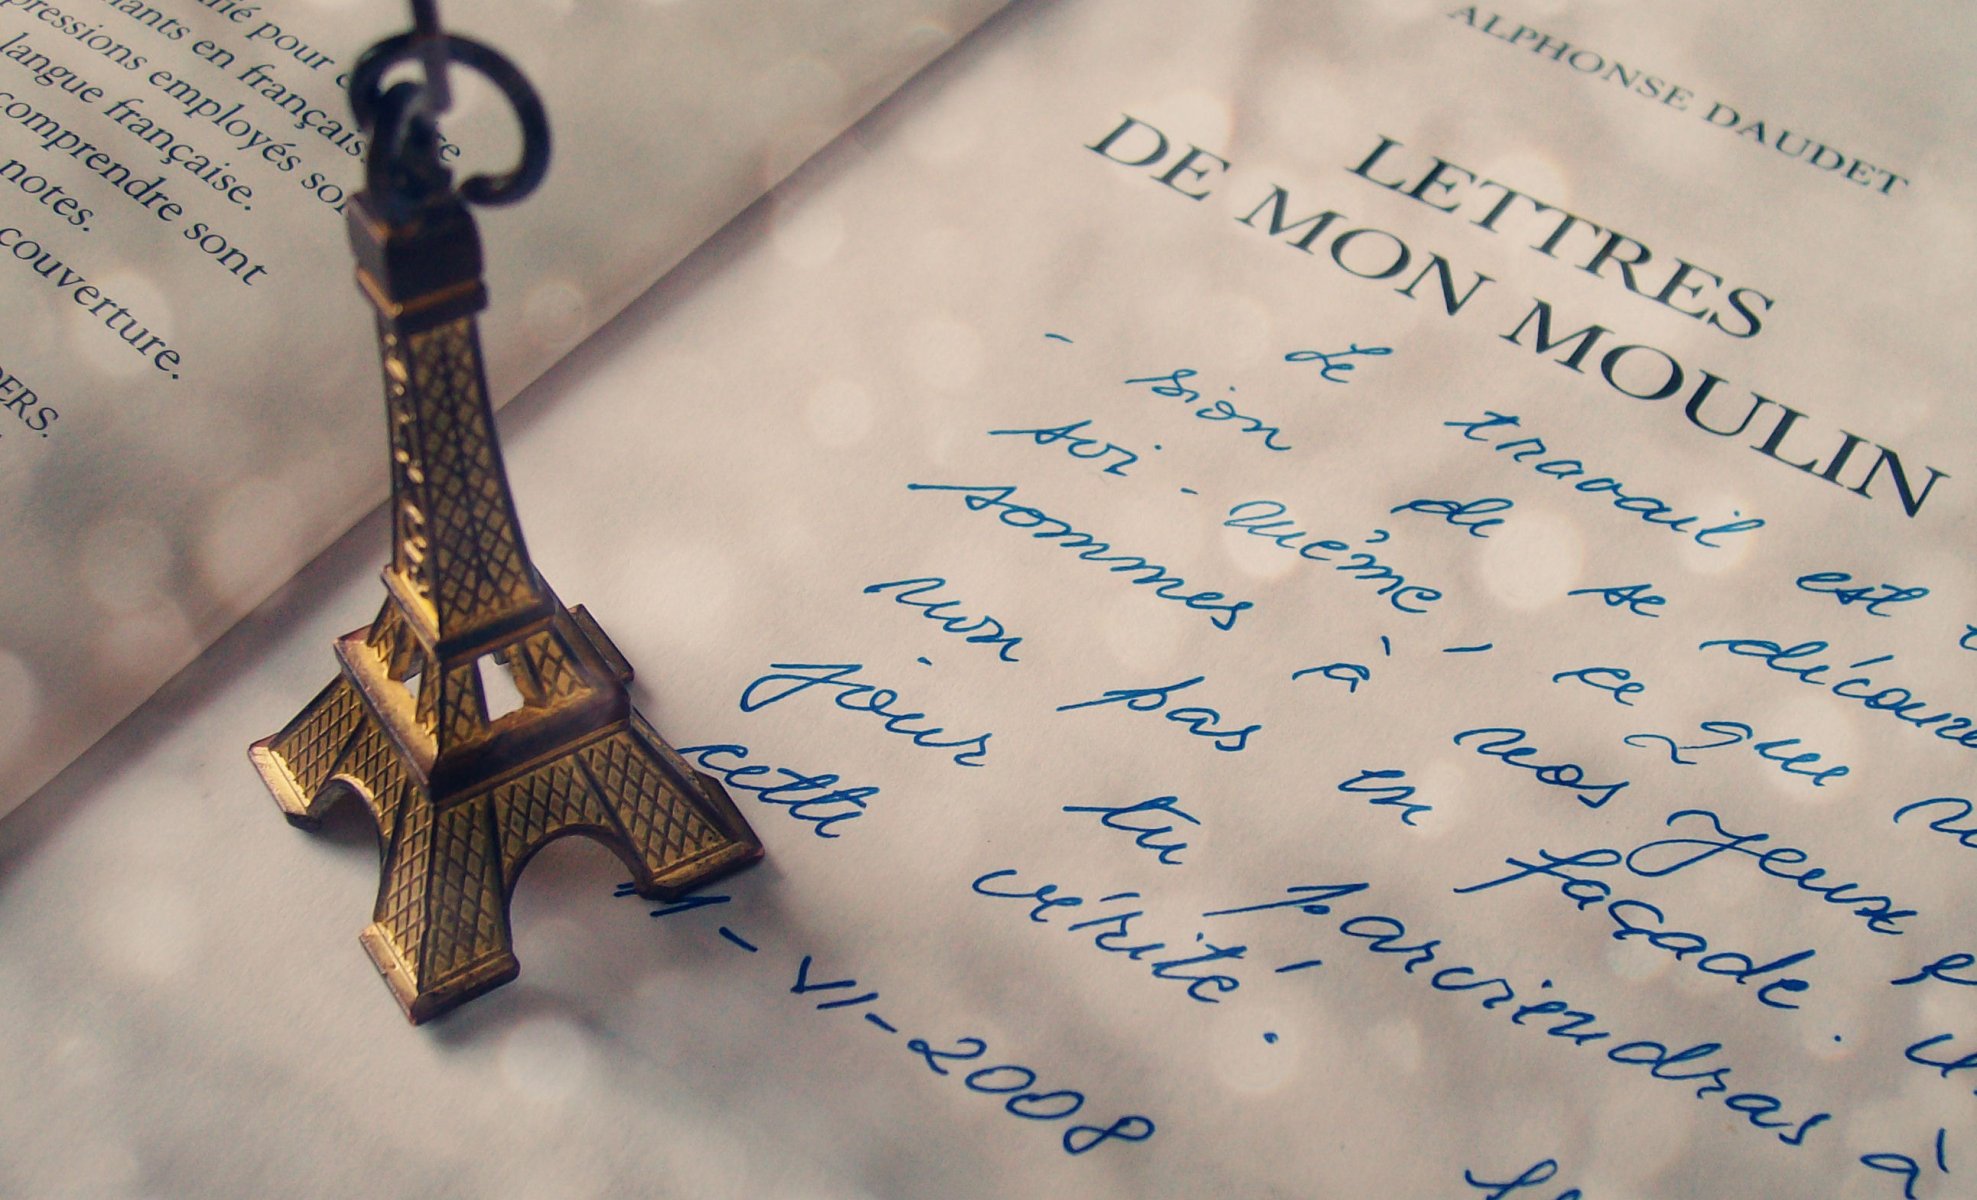 ifié pour
iants en français.
pressions employés son
langue française.
comprendre sont
notes.
couverture.
DERS.
ALPHONSE DAUDET
LETTRES
DE MON MOULIN
Le travail est
- sion de se découvr
soi-même, ce que
sommes à nos yeux
non pas en façade.
jour tu parviendras à
cette vérité.
VI-2008